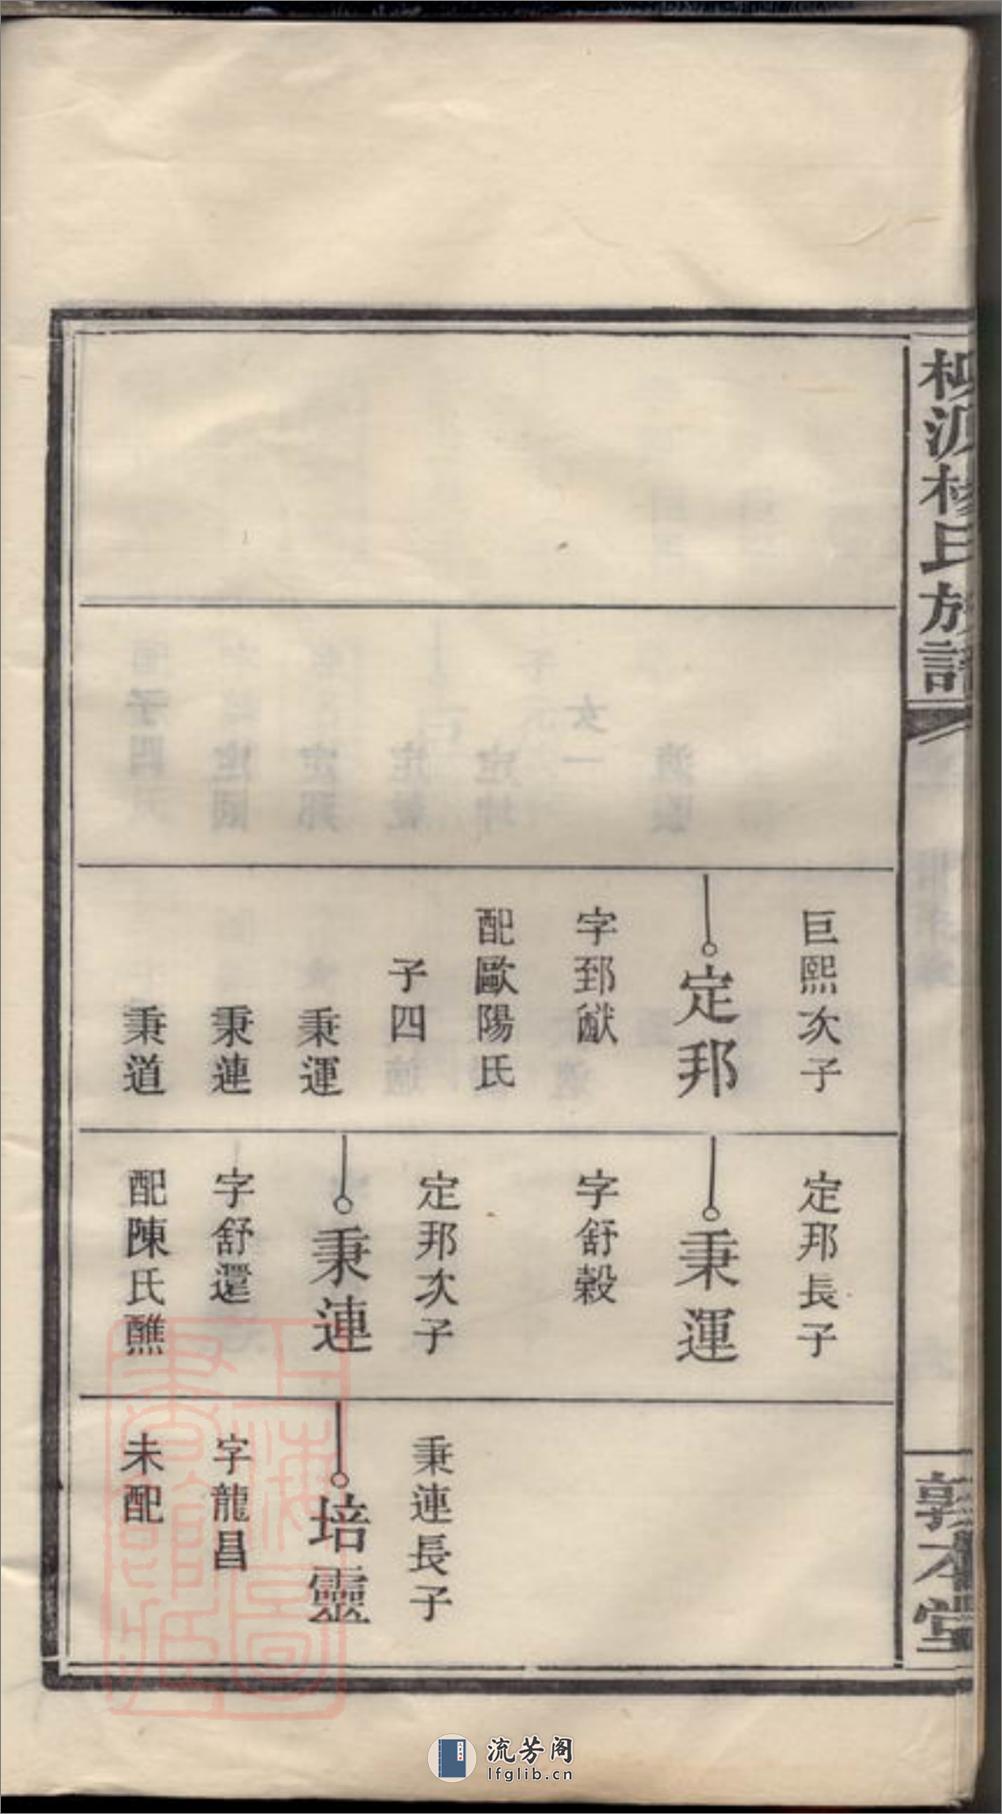 柳源楊氏族譜
敦本堂
巨熙次子
定邦
字郅猷
配歐陽氏
子四
秉運
秉連
秉道
定邦長子
秉運
字舒穀
定邦次子
秉連
字舒還
配陳氏醮
秉連長子
培靈
字龍昌
未配
上海圖書館藏
流芳阁
lfglib.cn